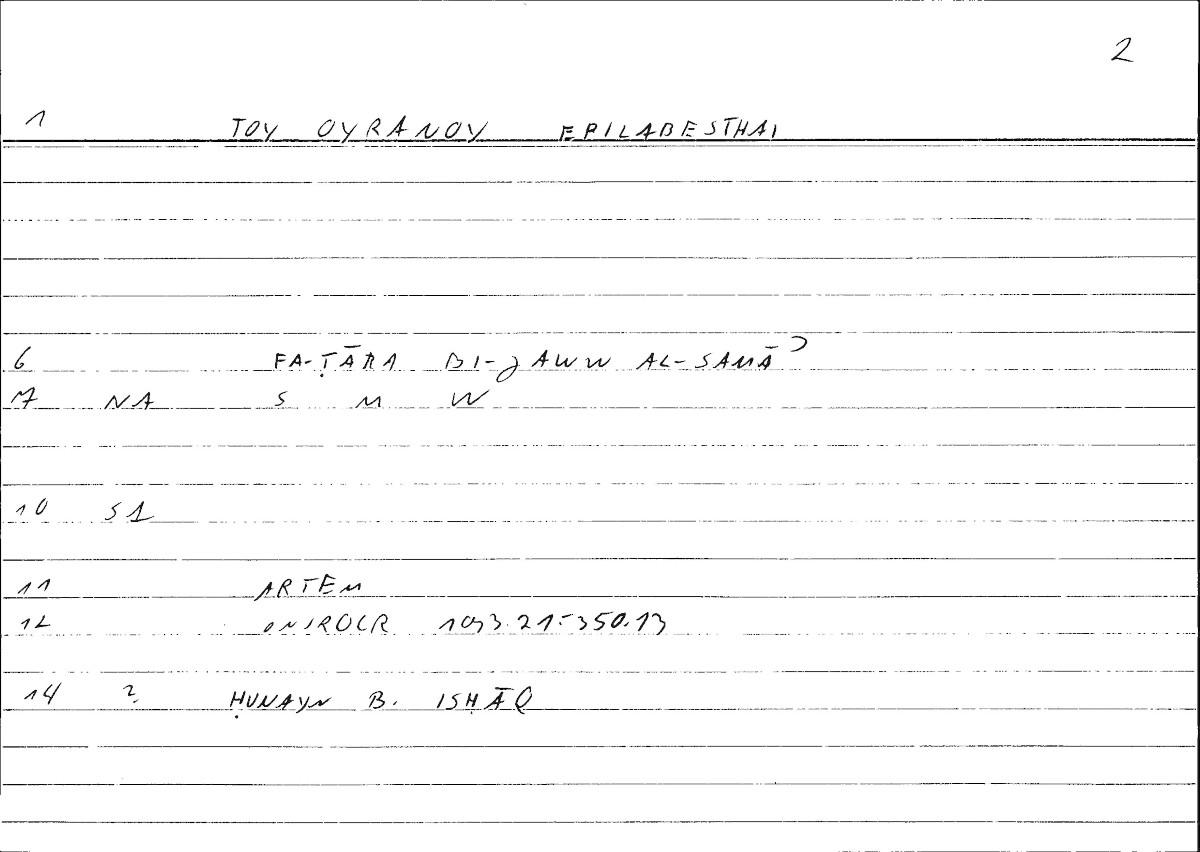 2
1 TOY OYRANOY EPILABESTHAI
6 FA-ṬĀRA BI-JAWW AL-SAMĀʾ
7 NA S M W
10 S1
11 ARTEM
12 ONIROCR 193.21-350.13
14 ? ḤUNAYN B. ISḤĀQ